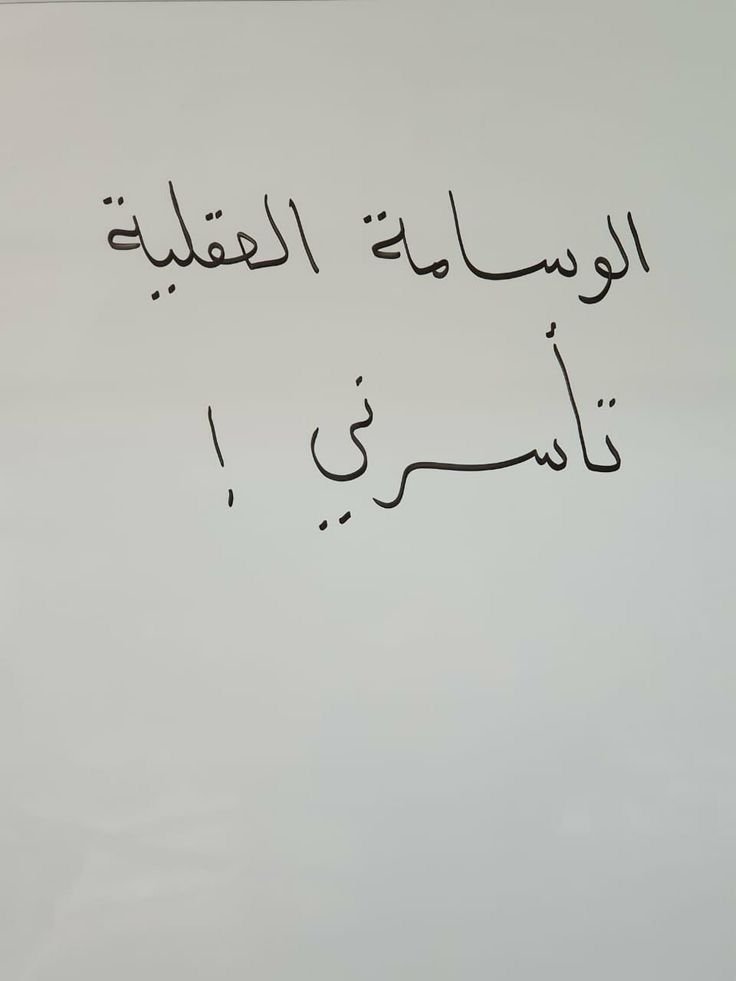 الوسامة العقلية
تأسرني !